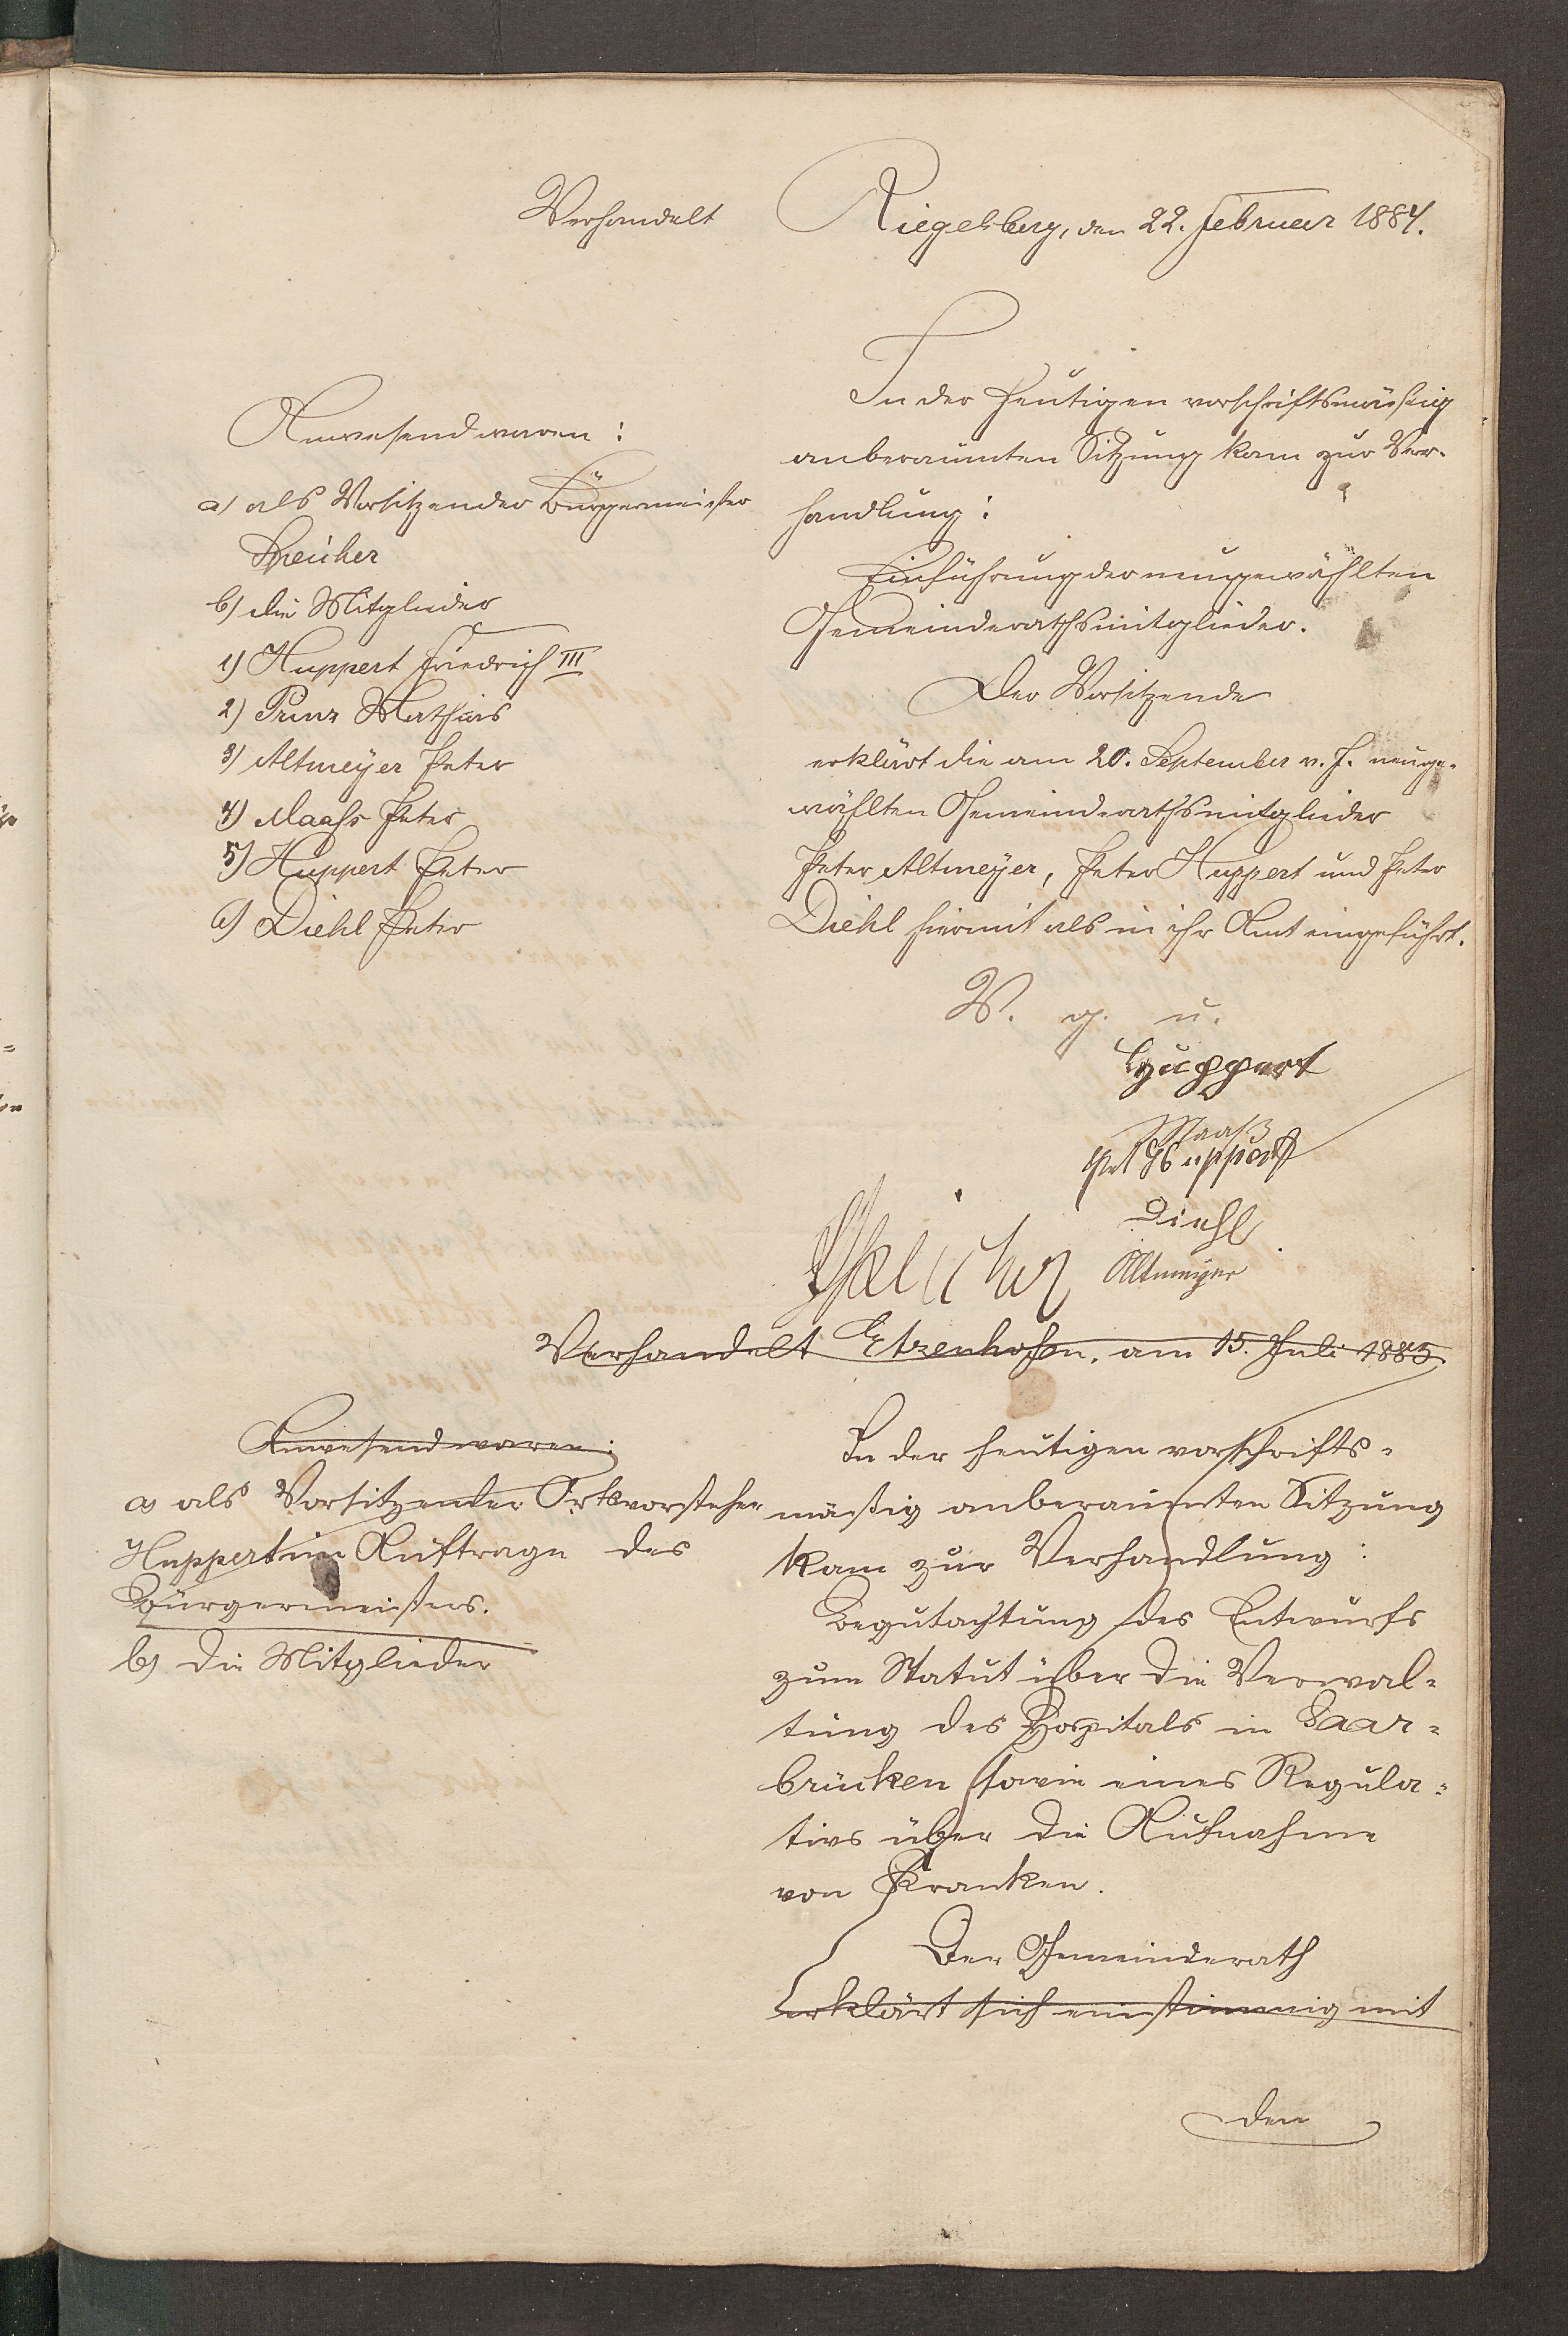 Verhandelt Riegelsberg, den 22. Februar 1884.
Anwesend waren:
a) als Vorsitzender Bürgermeister
Speicher
b) die Mitglieder
1) Huppert Friedrich III
2) Prinz Mathias
3) Altmeyer Peter
4) Maahs Peter
5) Huppert Peter
6) Diehl Peter
In der heutigen vorschriftsmäßig
anberaumten Sitzung kam zur Ver-
handlung:
Einführung der neugewählten
Gemeinderathsmitglieder.
Der Vorsitzende
erklärt die am 20. September v. J. neuge-
wählten Gemeinderathsmitglieder
Peter Altmeyer, Peter Huppert und Peter
Diehl hiermit als in ihr Amt eingeführt.
V. g. u.
Huppert
Maaß
Pet Huppert
Diehl
Speicher Altmeyer
Verhandelt Etzenhofen, am 15. Juli 1885.
Anwesend waren:
a) als Vorsitzender Ortsvorsteher
Huppert im Auftrage des
Bürgermeisters.
b) die Mitglieder
In der heutigen vorschrifts-
mäßig anberaumten Sitzung
kam zur Verhandlung:
Begutachtung des Entwurfs
zum Statut über die Verwal-
tung des Hospitals in Saar-
brücken sowie eines Regula-
tivs über die Aufnahme
von Kranken.
Der Gemeinderath
erklärt sich einstimmig mit
den